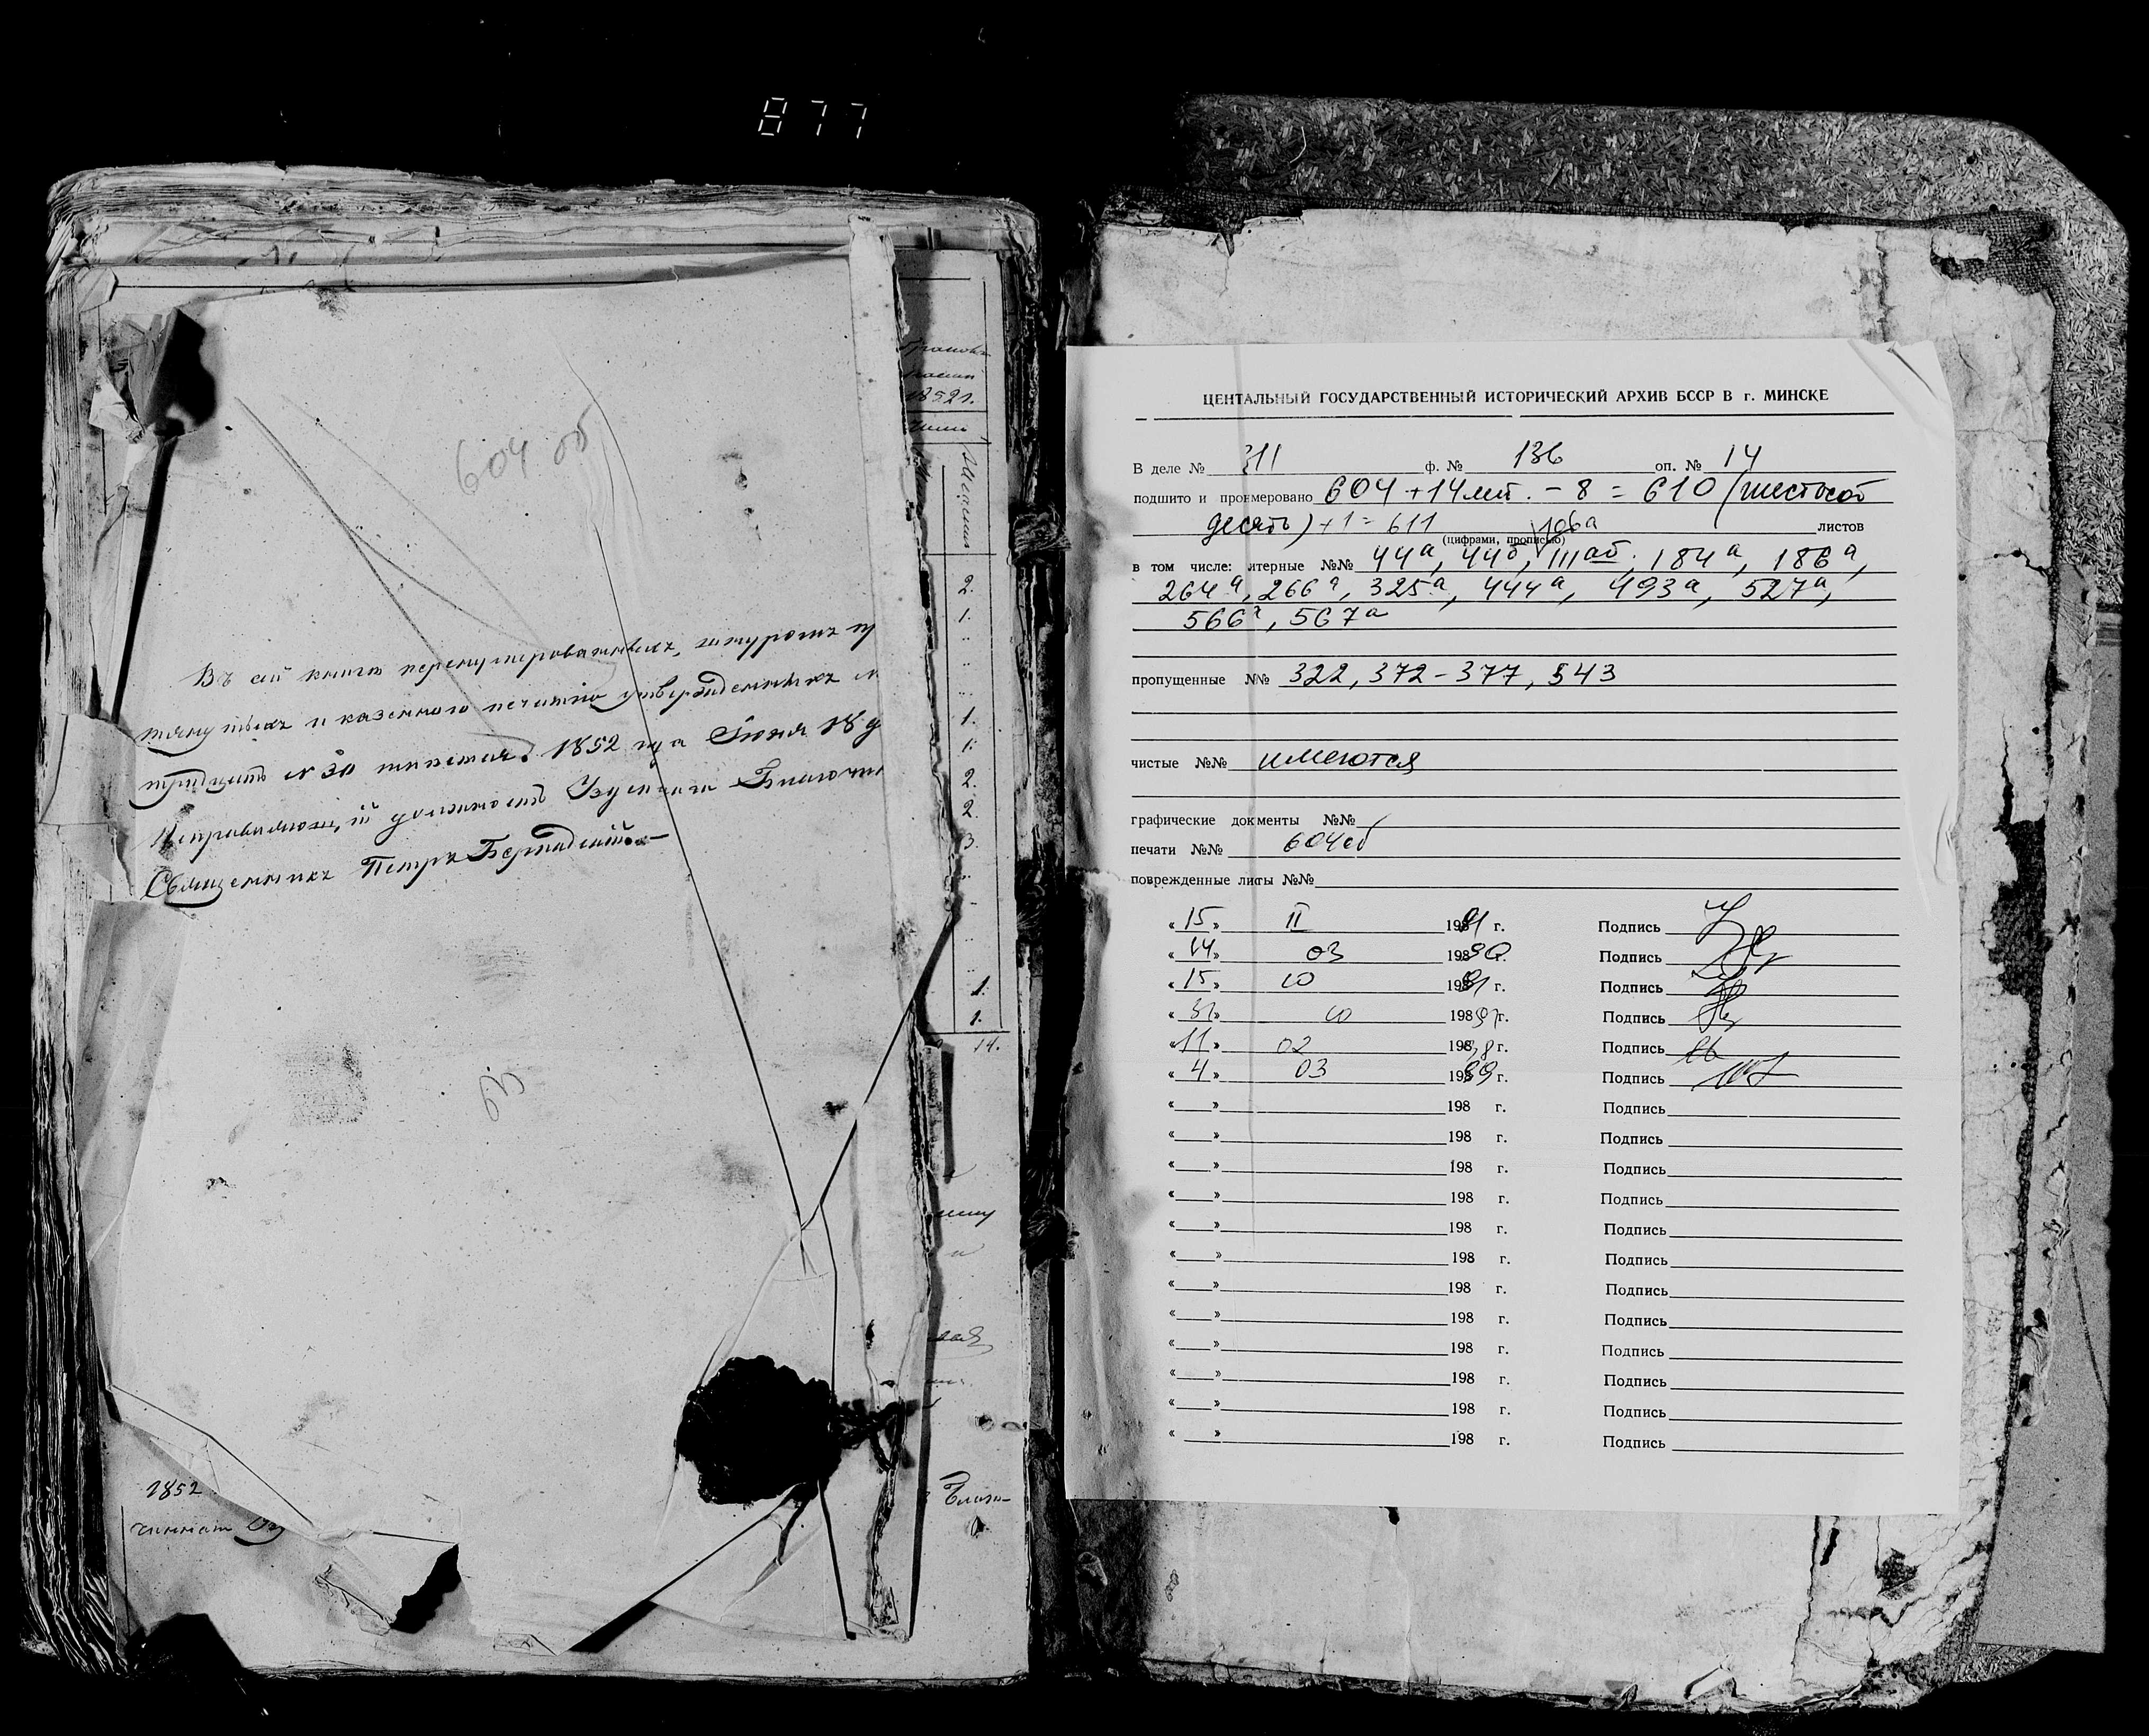 877
604 об
Въ сей книгѣ перенумерованныхъ, шнуромъ
тянутыхъ и казенною печатью утвержденныхъ
тридцать № 30 листовъ. 1852 года Июня 18
Исправляющій должность
Священникъ Петръ
1852
1852 г.
2.
1.
1.
1.
2.
2.
3.
1.
1.
14.
ЦЕНТАЛЬНЫЙ ГОСУДАРСТВЕННЫЙ ИСТОРИЧЕСКИЙ АРХИВ БССР В г. МИНСКЕ
В деле № 311 ф. № 136 оп. № 14
подшито и пронмеровано 604 + 14 лит. – 8 = 610 (шестьсот
десять) + 1 = 611 106а листов
(цифрами, прописью)
в том числе: итерные №№ 44а, 44б, 111аб, 184а, 186а,
264а, 266а, 325а, 444а, 493а, 527а,
566а, 567а
пропущенные №№ 322, 372–377, 543
чистые №№ имеются
графические документы №№
печати №№ 604об
поврежденные листы №№
« 15 » II 1991 г. Подпись
« 14 » 03 198 г. Подпись
« 15 » 10 1991 г. Подпись
« 31 » 10 19897 г. Подпись
« 11 » 02 198 г. Подпись
« 4 » 03 1999 г. Подпись
« » 198 г. Подпись
« » 198 г. Подпись
« » 198 г. Подпись
« » 198 г. Подпись
« » 198 г. Подпись
« » 198 г. Подпись
« » 198 г. Подпись
« » 198 г. Подпись
« » 198 г. Подпись
« » 198 г. Подпись
« » 198 г. Подпись
« » 198 г. Подпись